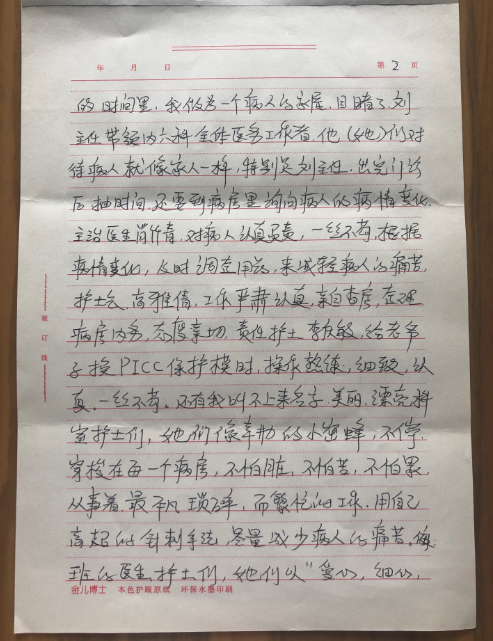 年 月 日 第2页
的时间里，我做为一个病人的家属，目睹了刘
主任带领内六科全体医务工作者，他（她）们对
待病人就像家人一样，特别是刘主任，出完门诊
后抽时间，还要到病房里询问病人的病情变化，
主治医生肖作青，对病人认真负责，一丝不苟，根据
病情变化，及时调在用药，来减轻病人的痛苦，
护士长，高雅倩，工作严肃认真，亲自查房，
病房内务，态度亲切，责任护士李友敏，给老爷
子换PICC保护模时，操作熟练，细致，认
真，一丝不苟，还有我叫不上来名字，美丽，漂亮科
室护士们，她们像辛勤的小蜜蜂，不停，
穿梭在每一个病房，不怕脏，不怕苦，不怕累，
从事着最平凡琐碎，而繁忙的工作，用自己
高超的针刺手法，尽量减少病人的痛苦，
班的医生，护士们，她们以"爱心，细心，
装订线
金儿博士 本色护眼原纸 环保水墨印刷